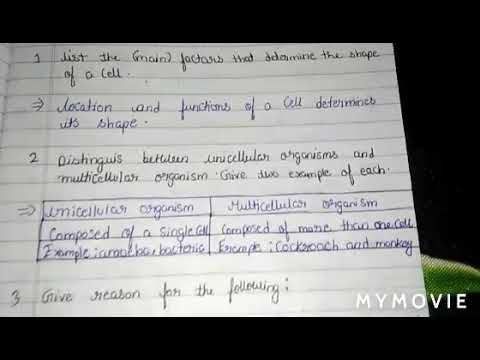 1 List the (main) factors that determine the shape
of a cell.
⇒ Location and functions of a cell determines
its shape.
2 Distinguis between unicellular organisms and
multicellular organism. Give two example of each.
⇒ Unicellular organism Multicellular organism
Composed of a single cell Composed of more than one cell
Example: amoeba, bacteria Example: Cockroach and monkey
3 Give reason for the following:
MYMOVIE